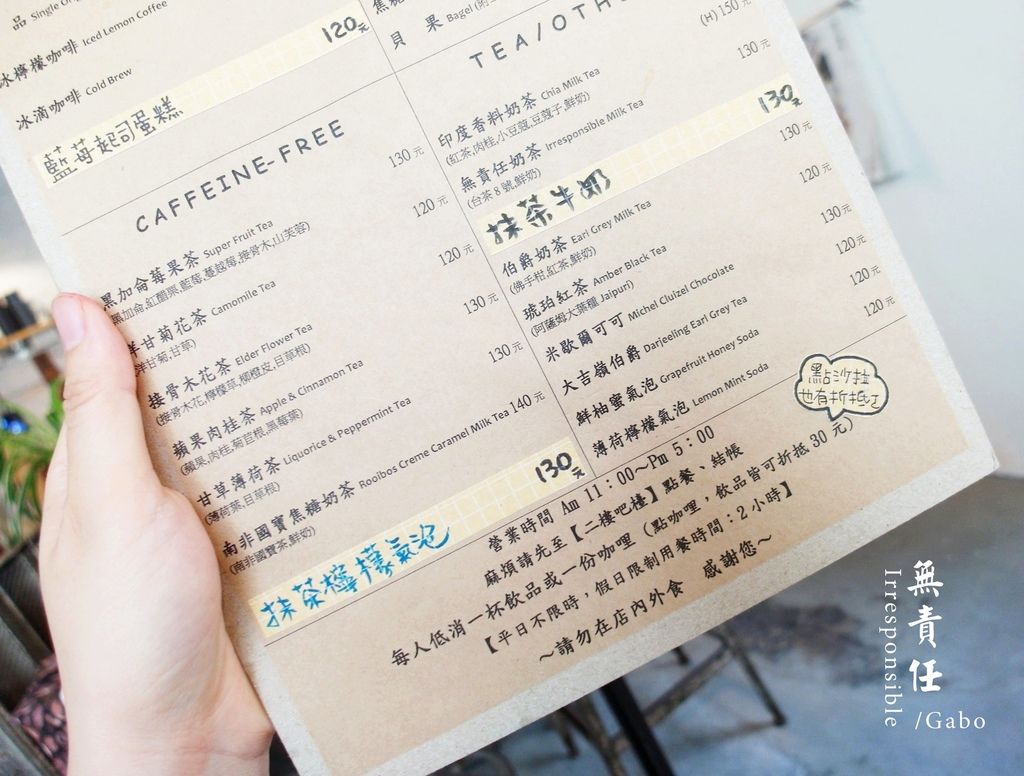 品 Single Ori
冰檸檬咖啡 Iced Lemon Coffee
冰滴咖啡 Cold Brew
藍莓起司蛋糕 120元
CAFFEINE-FREE
黑加侖莓果茶 Super Fruit Tea 130 元
黑加侖,紅醋栗,藍莓,蔓越莓,接骨木,山芙蓉)
洋甘菊花茶 Camomile Tea 120 元
洋甘菊,甘草)
接骨木花茶 Elder Flower Tea 120 元
(接骨木花,檸檬草,柳橙皮,目草根)
蘋果肉桂茶 Apple & Cinnamon Tea 130 元
(蘋果,肉桂,菊苣根,黑莓葉)
甘草薄荷茶 Liquorice & Peppermint Tea 130 元
(薄荷葉,目草根)
南非國寶焦糖奶茶 Rooibos Creme Caramel Milk Tea 140 元
(南非國寶茶,鮮奶)
抹茶檸檬氣泡 130元
貝 果 Bagel
(H) 150 元
TEA/OTH
印度香料奶茶 Chia Milk Tea 130 元
(紅茶,肉桂,小豆蔻,豆蔻子,鮮奶)
無責任奶茶 Irresponsible Milk Tea
(台茶 8 號,鮮奶)
抹茶牛奶 130元
伯爵奶茶 Earl Grey Milk Tea 130 元
(佛手柑,紅茶,鮮奶)
琥珀紅茶 Amber Black Tea 120 元
(阿薩姆大葉種 Jaipuri)
米歇爾可可 Michel Cluizel Chocolate 130 元
大吉嶺伯爵 Darjeeling Earl Grey Tea 120 元
鮮柚蜜氣泡 Grapefruit Honey Soda 120 元
薄荷檸檬氣泡 Lemon Mint Soda 120 元
點沙拉
也有折抵
營業時間 Am 11：00～Pm 5：00
麻煩請先至【二樓吧檯】點餐、結帳
每人低消一杯飲品或一份咖哩（點咖哩，飲品皆可折抵 30 元）
【平日不限時，假日限制用餐時間：2 小時】
～請勿在店內外食 感謝您～
無責任
Irresponsible
/Gabo